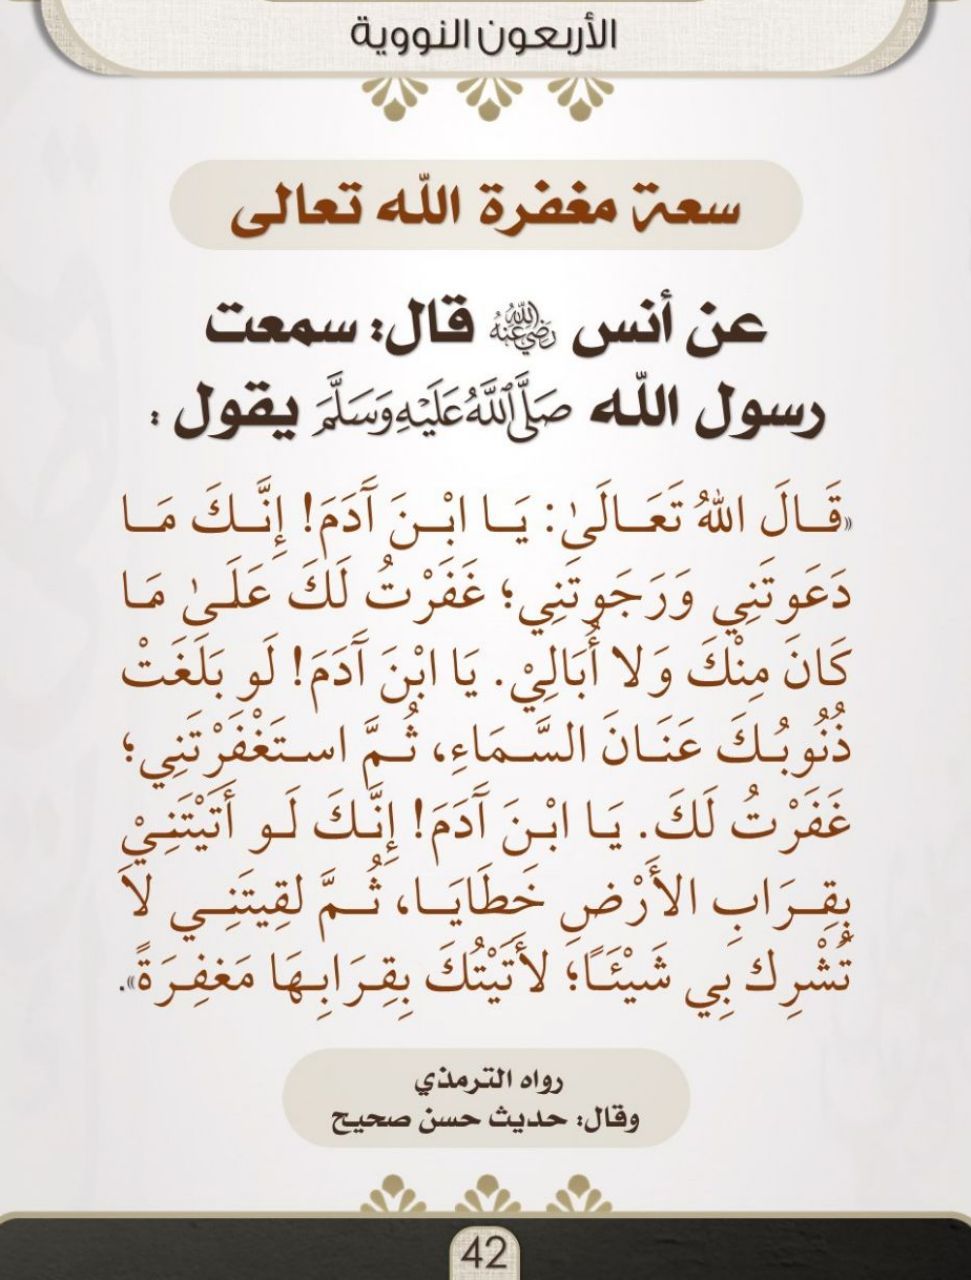 الأربعون النووية
سعة مغفرة الله تعالى
عن أنس رضي الله عنه قال: سمعت
رسول الله صَلَّى اللَّهُ عَلَيْهِ وَسَلَّمَ يقول :
«قَالَ اللهُ تَعَالَىٰ: يَا ابْنَ آدَمَ! إِنَّكَ مَا
دَعَوتَنِي وَرَجَوتَنِي؛ غَفَرْتُ لَكَ عَلَىٰ مَا
كَانَ مِنْكَ وَلا أُبَالِيْ. يَا ابْنَ آدَمَ! لَو بَلَغَتْ
ذُنُوبُكَ عَنَانَ السَّمَاءِ، ثُمَّ استَغْفَرْتَنِي؛
غَفَرْتُ لَكَ. يَا ابْنَ آدَمَ! إِنَّكَ لَو أَتَيْتَنِيْ
بِقِرَابِ الأَرْضِ خَطَايَا، ثُمَّ لقِيتَنِي لاَ
تُشْرِك بِي شَيْئًا؛ لأَتَيْتُكَ بِقِرَابِهَا مَغفِرَةً».
رواه الترمذي
وقال: حديث حسن صحيح
42